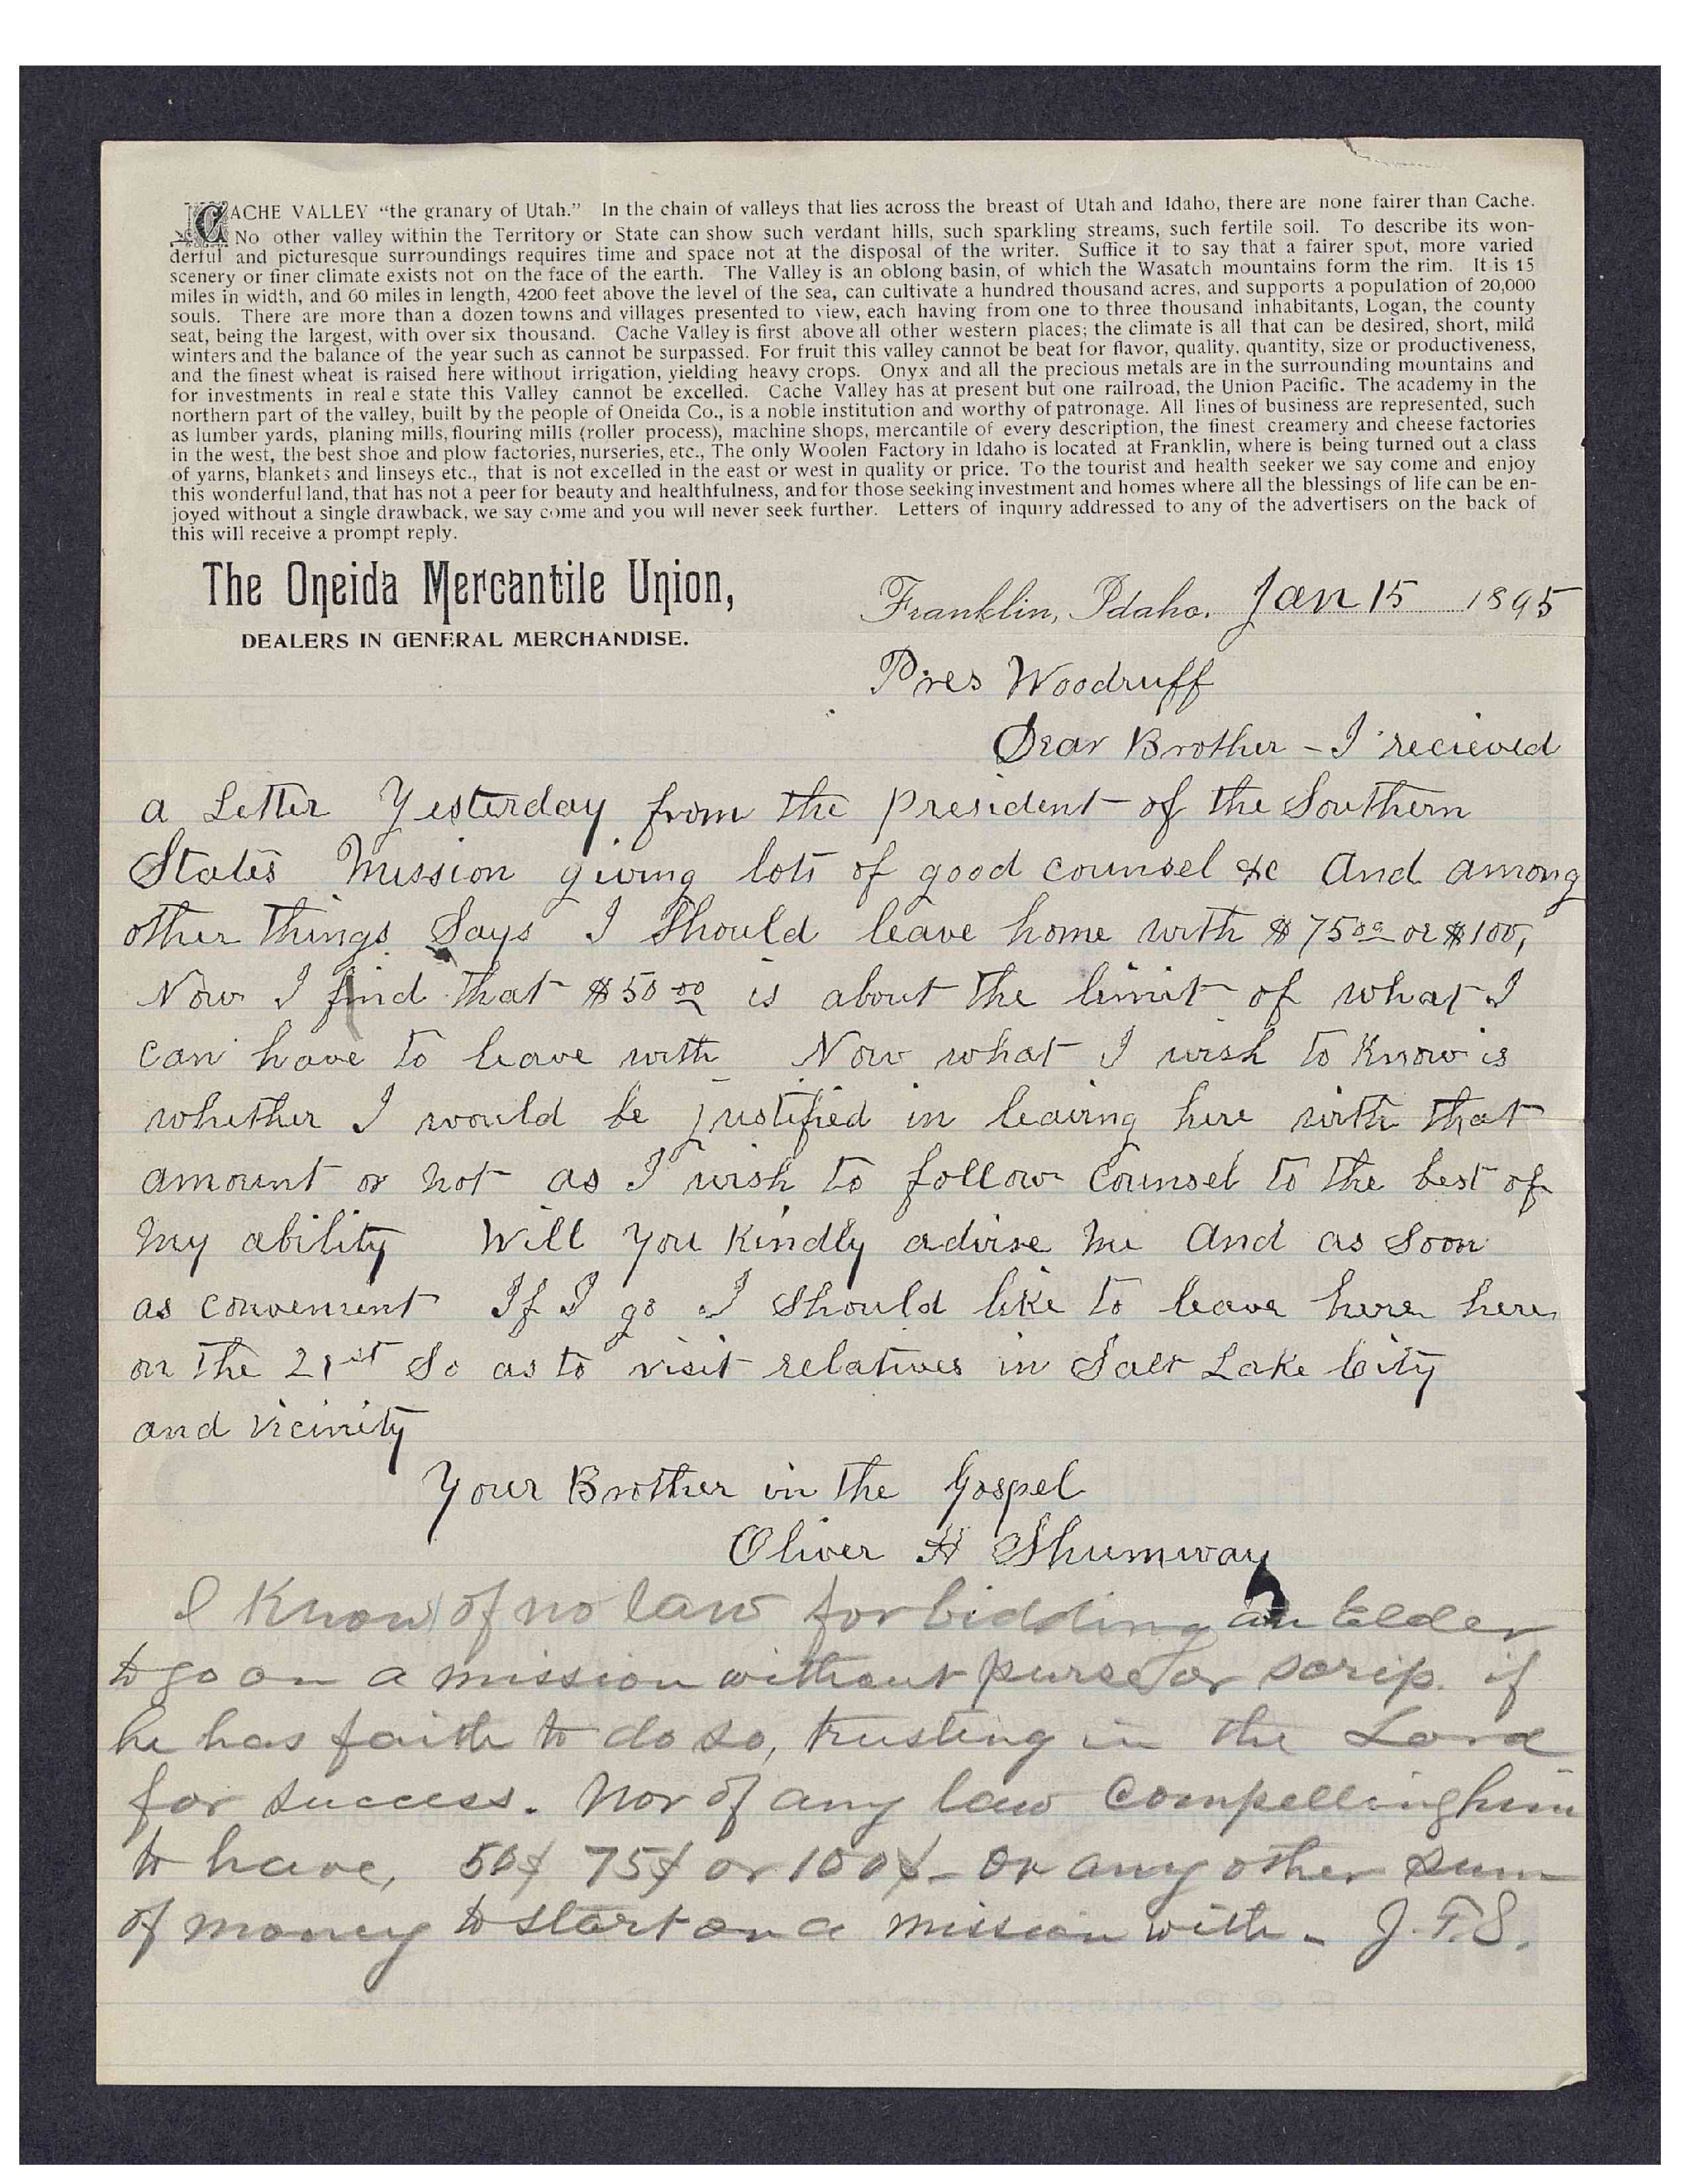 CACHE VALLEY “the granary of Utah.” In the chain of valleys that lies across the breast of Utah and Idaho, there are none fairer than Cache.
No other valley within the Territory or State can show such verdant hills, such sparkling streams, such fertile soil. To describe its won-
derful and picturesque surroundings requires time and space not at the disposal of the writer. Suffice it to say that a fairer spot, more varied
scenery or finer climate exists not on the face of the earth. The Valley is an oblong basin, of which the Wasatch mountains form the rim. It is 15
miles in width, and 60 miles in length, 4200 feet above the level of the sea, can cultivate a hundred thousand acres, and supports a population of 20,000
souls. There are more than a dozen towns and villages presented to view, each having from one to three thousand inhabitants, Logan, the county
seat, being the largest, with over six thousand. Cache Valley is first above all other western places; the climate is all that can be desired, short, mild
winters and the balance of the year such as cannot be surpassed. For fruit this valley cannot be beat for flavor, quality, quantity, size or productiveness,
and the finest wheat is raised here without irrigation, yielding heavy crops. Onyx and all the precious metals are in the surrounding mountains and
for investments in real e state this Valley cannot be excelled. Cache Valley has at present but one railroad, the Union Pacific. The academy in the
northern part of the valley, built by the people of Oneida Co., is a noble institution and worthy of patronage. All lines of business are represented, such
as lumber yards, planing mills, flouring mills (roller process), machine shops, mercantile of every description, the finest creamery and cheese factories
in the west, the best shoe and plow factories, nurseries, etc., The only Woolen Factory in Idaho is located at Franklin, where is being turned out a class
of yarns, blankets and linseys etc., that is not excelled in the east or west in quality or price. To the tourist and health seeker we say come and enjoy
this wonderful land, that has not a peer for beauty and healthfulness, and for those seeking investment and homes where all the blessings of life can be en-
joyed without a single drawback, we say come and you will never seek further. Letters of inquiry addressed to any of the advertisers on the back of
this will receive a prompt reply.
The Oneida Mercantile Union,
DEALERS IN GENERAL MERCHANDISE.
Franklin, Idaho. Jan 15 1895
Pres Woodruff
Dear Brother - I recieved
a Letter Yesterday from the president of the Southern
States Mission giving lots of good counsel &c And among
other things Says I Should leave home with $75 00 or $100,
Now I find that $50 00 is about the limit of what I
can have to leave with Now what I wish to Know is
whether I would be justified in leaving here with that
amount or not as I wish to follow Counsel to the best of
my ability Will you Kindly advise me And as Soon
as convenient If I go I should like to leave here here
on the 21st So as to visit relatives in Salt Lake City
and vicinity
Your Brother in the Gospel
Oliver H Shumway
I Know of no law forbidding an Elder
to go on a mission without purse or scrip. if
he has faith to do so, trusting in the Lord
for success. Nor of any law compelling him
to have, 50$ 75$ or 100$ - or any other sum
of money to start on a mission with - J.F.S.